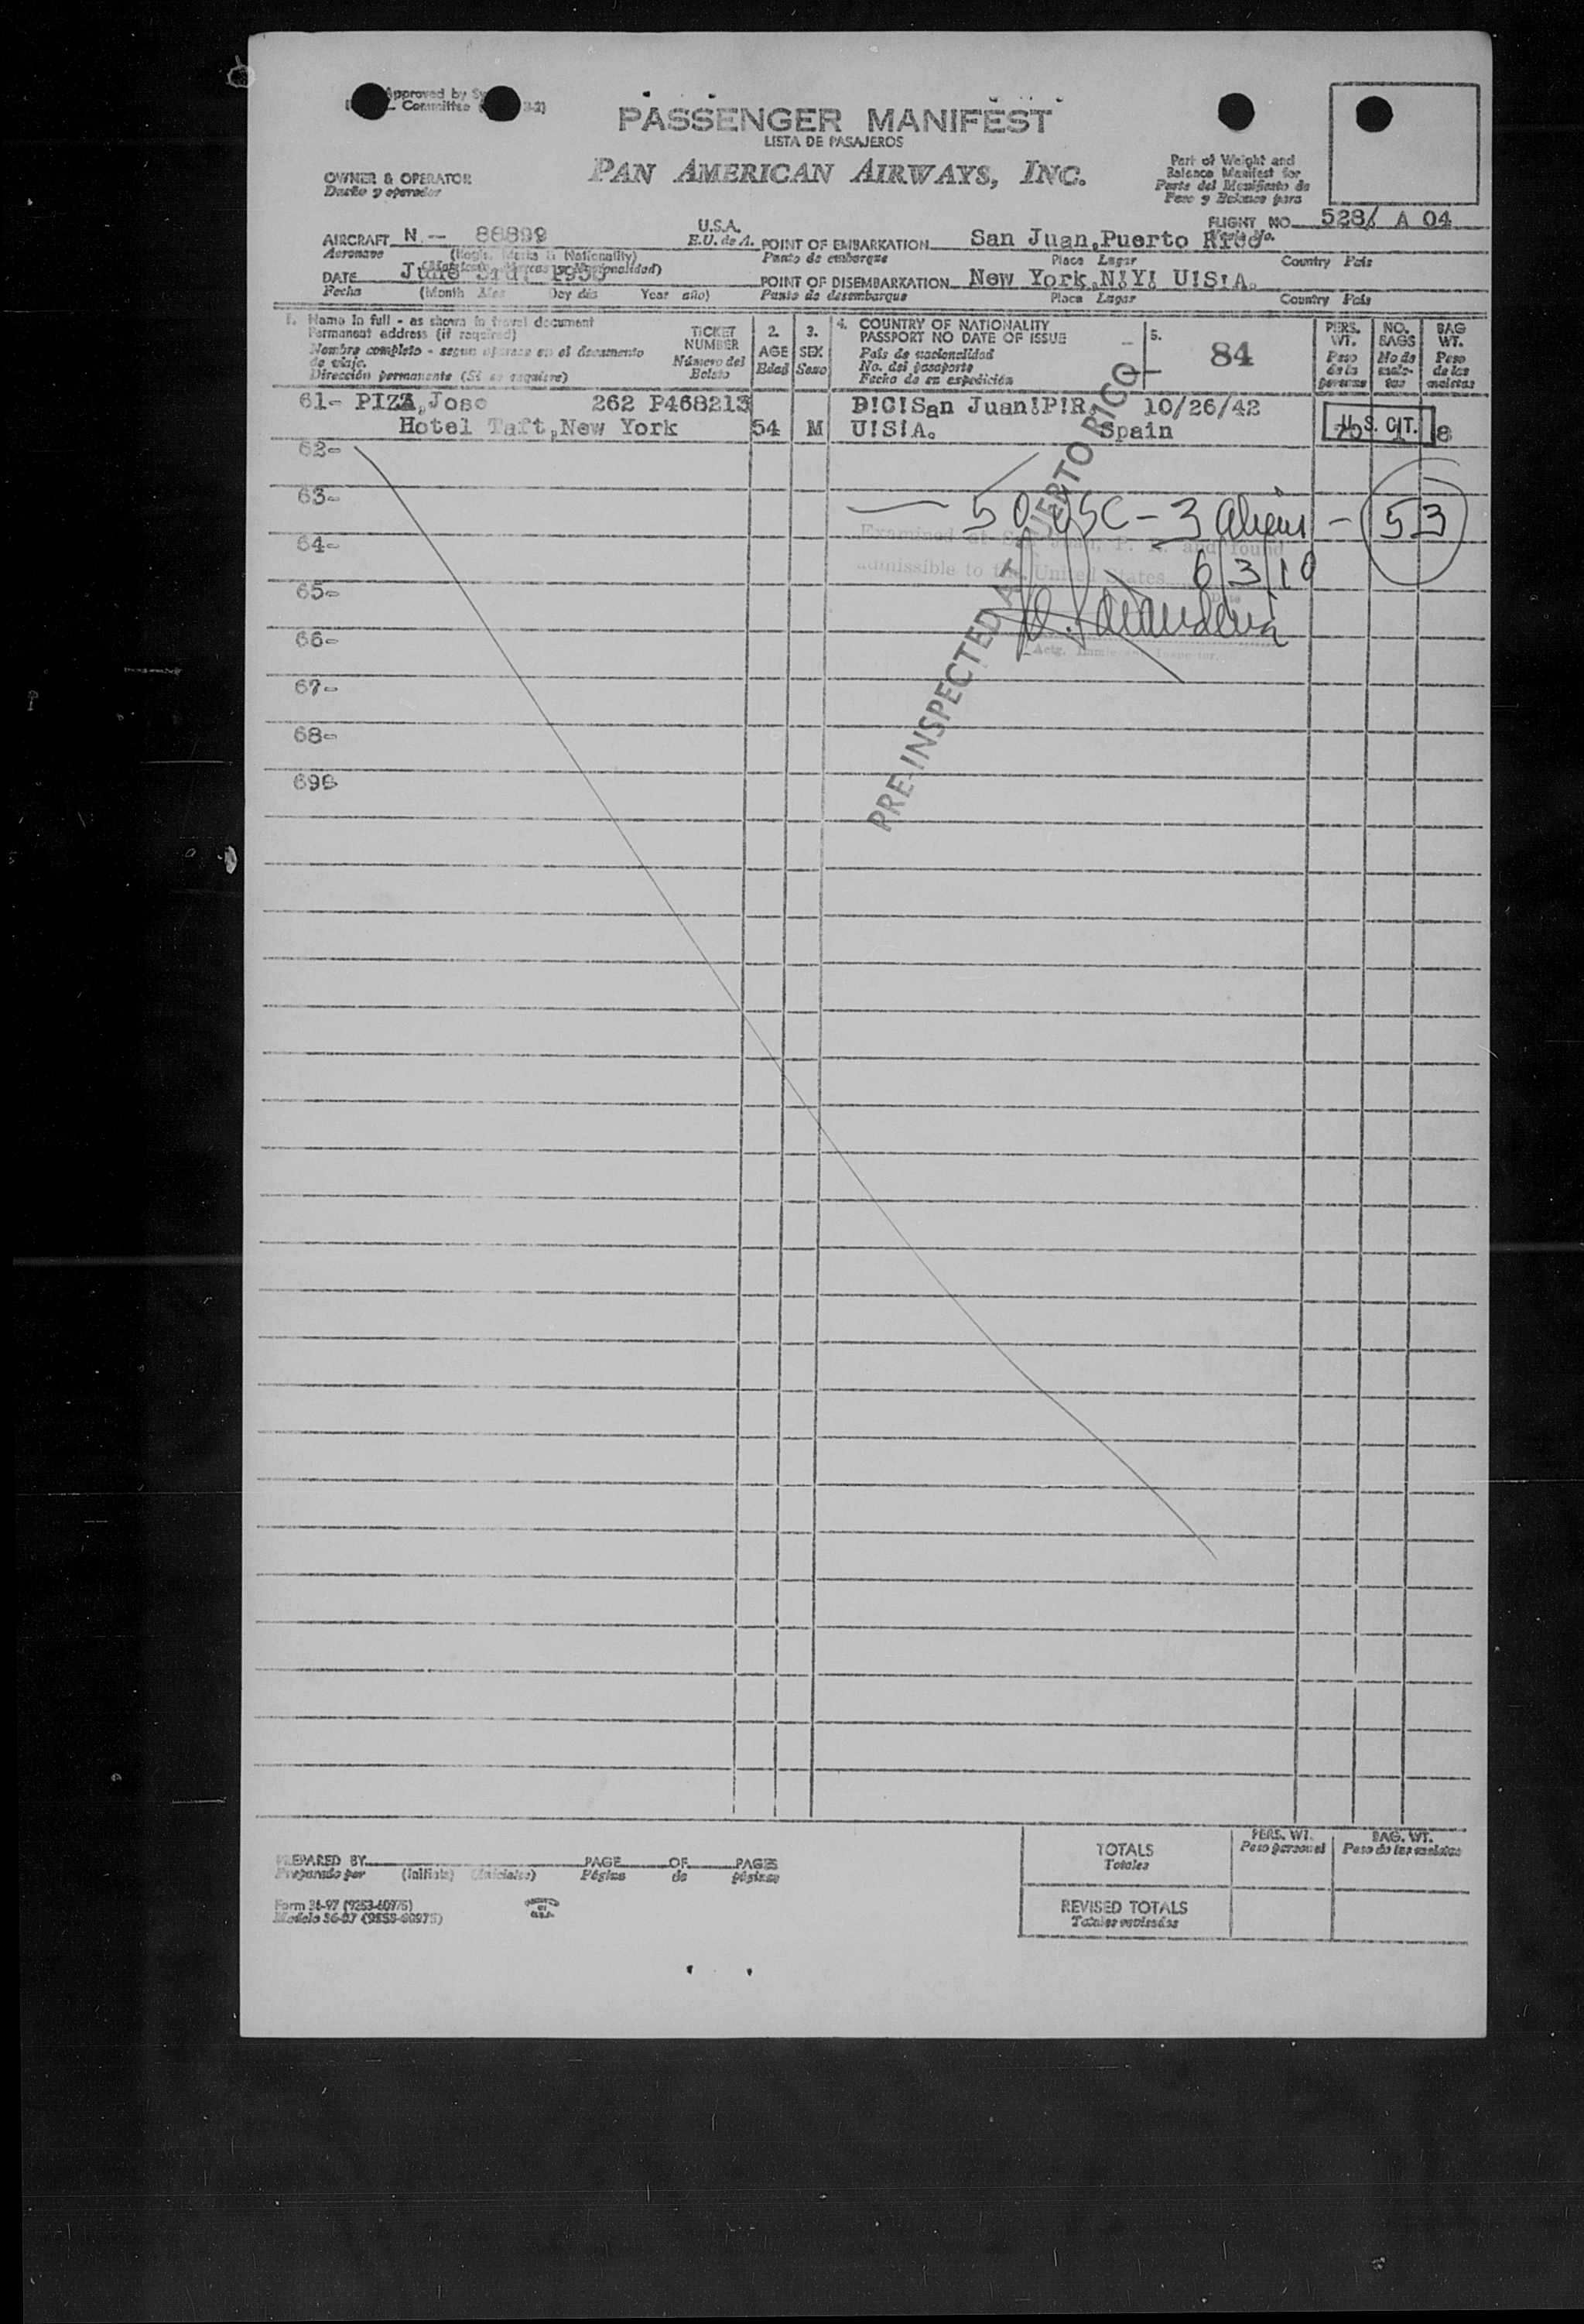 Approved by
Committee
PASSENGER MANIFEST
LISTA DE PASAJEROS
PAN AMERICAN AIRWAYS, INC.
OWNER & OPERATOR
Dueño y operador
Part of Weight and
Balance Manifest for
Parte del Manifiesto de
Peso y Balance para
FLIGHT NO. 528/ A 04
AIRCRAFT N - 88899
Aeronave
U.S.A.
E.U. de A.
POINT OF EMBARKATION San Juan, Puerto Rico
Punto de embarque Place Lugar Country País
DATE June 3rd, 1950
Fecha (Month Mes Day día Year año)
POINT OF DISEMBARKATION New York, N!Y! U!S!A.
Punto de desembarque Place Lugar Country País
1. Name in full - as shown in travel document
Permanent address (if required)
Nombre completo - segun aparece en el documento
de viaje.
Dirección permanente (Si se requiere)
TICKET
NUMBER
Número del
Boleto
2.
AGE
Edad
3.
SEX
Sexo
4. COUNTRY OF NATIONALITY
PASSPORT NO DATE OF ISSUE
País de nacionalidad
No. del pasaporte
Fecha de su expedición
5. 84
PERS.
WT.
Peso
de la
persona
NO.
BAGS
No de
male-
tas
BAG
WT.
Peso
de las
maletas
61- PIZA, Jose 262 P468213 B!C!San Juan!P!R. 10/26/42
Hotel Taft, New York 54 M U!S!A. Spain U.S. CIT. 8
62-
63-
50 USC - 3 aliens - 53
Examined at San Juan, P. R. and found
64-
admissible to the United States 6/3/10
65-
66-
67-
68-
69-
PRE-INSPECTED AT PUERTO RICO
PREPARED BY PAGE OF PAGES
Preparado por (Initials) (Iniciales) Página de páginas
Form 36-97 (9253-60975)
Modelo 36-97 (9253-60975)
TOTALS
Totales
PERS. WT.
Peso personal
BAG. WT.
Peso de las maletas
REVISED TOTALS
Totales revisados